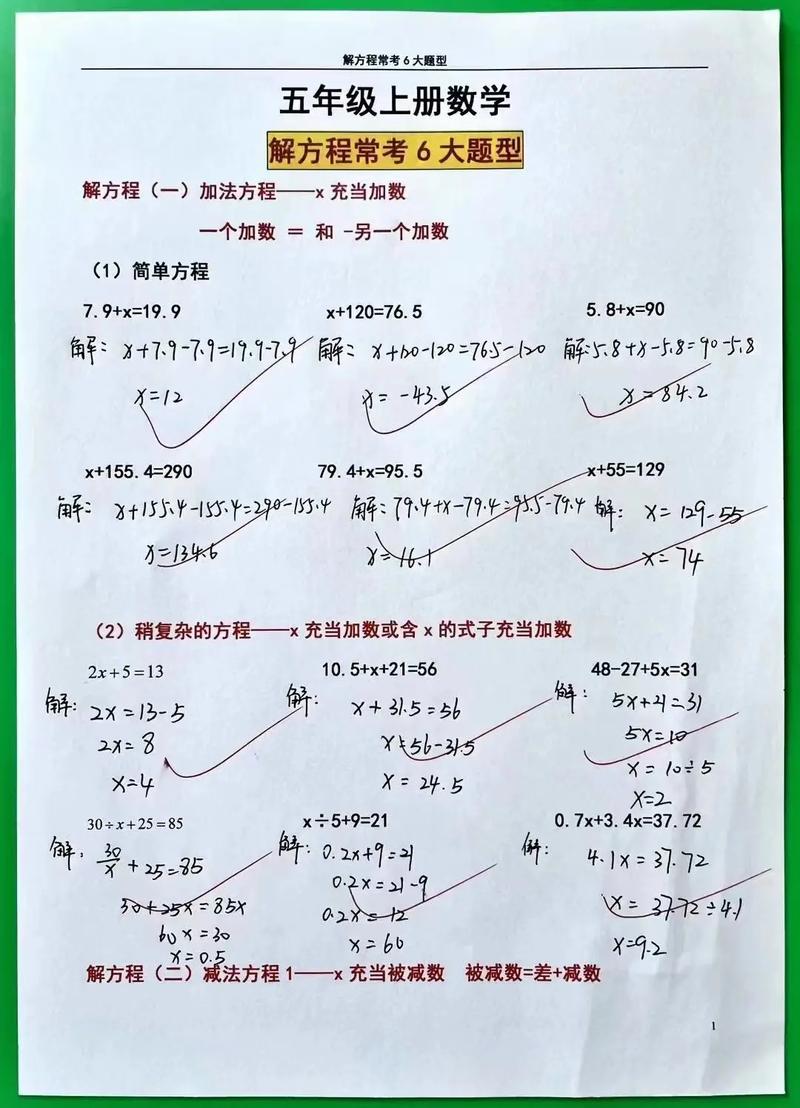 解方程常考 6 大题型
五年级上册数学
解方程常考 6 大题型
解方程（一）加法方程——x 充当加数
一个加数 ＝ 和 -另一个加数
（1）简单方程
7.9+x=19.9 x+120=76.5 5.8+x=90
解： x+7.9-7.9=19.9-7.9 解： x+120-120=76.5-120 解:5.8+x-5.8=90-5.8
x=12 x= -43.5 x=84.2
x+155.4=290 79.4+x=95.5 x+55=129
解： x+155.4-155.4=290-155.4 解：79.4+x-79.4=95.5-79.4 解： x=129-55
x=134.6 x=16.1 x=74
（2）稍复杂的方程——x 充当加数或含 x 的式子充当加数
2x+5=13 10.5+x+21=56 48-27+5x=31
解： 2x=13-5 解： x+31.5=56 解： 5x+21=31
2x=8 x=56-31.5 5x=10
x=4 x=24.5 x=10÷5
x=2
30÷x+25=85 x÷5+9=21 0.7x+3.4x=37.72
解： 30/x +25=85 解： 0.2x+9=21 解： 4.1x=37.72
30+25x=85x 0.2x=21-9 x= 37.72÷4.1
60x=30 0.2x=12 x=9.2
x=0.5 x=60
解方程（二）减法方程 1——x 充当被减数 被减数=差+减数
1